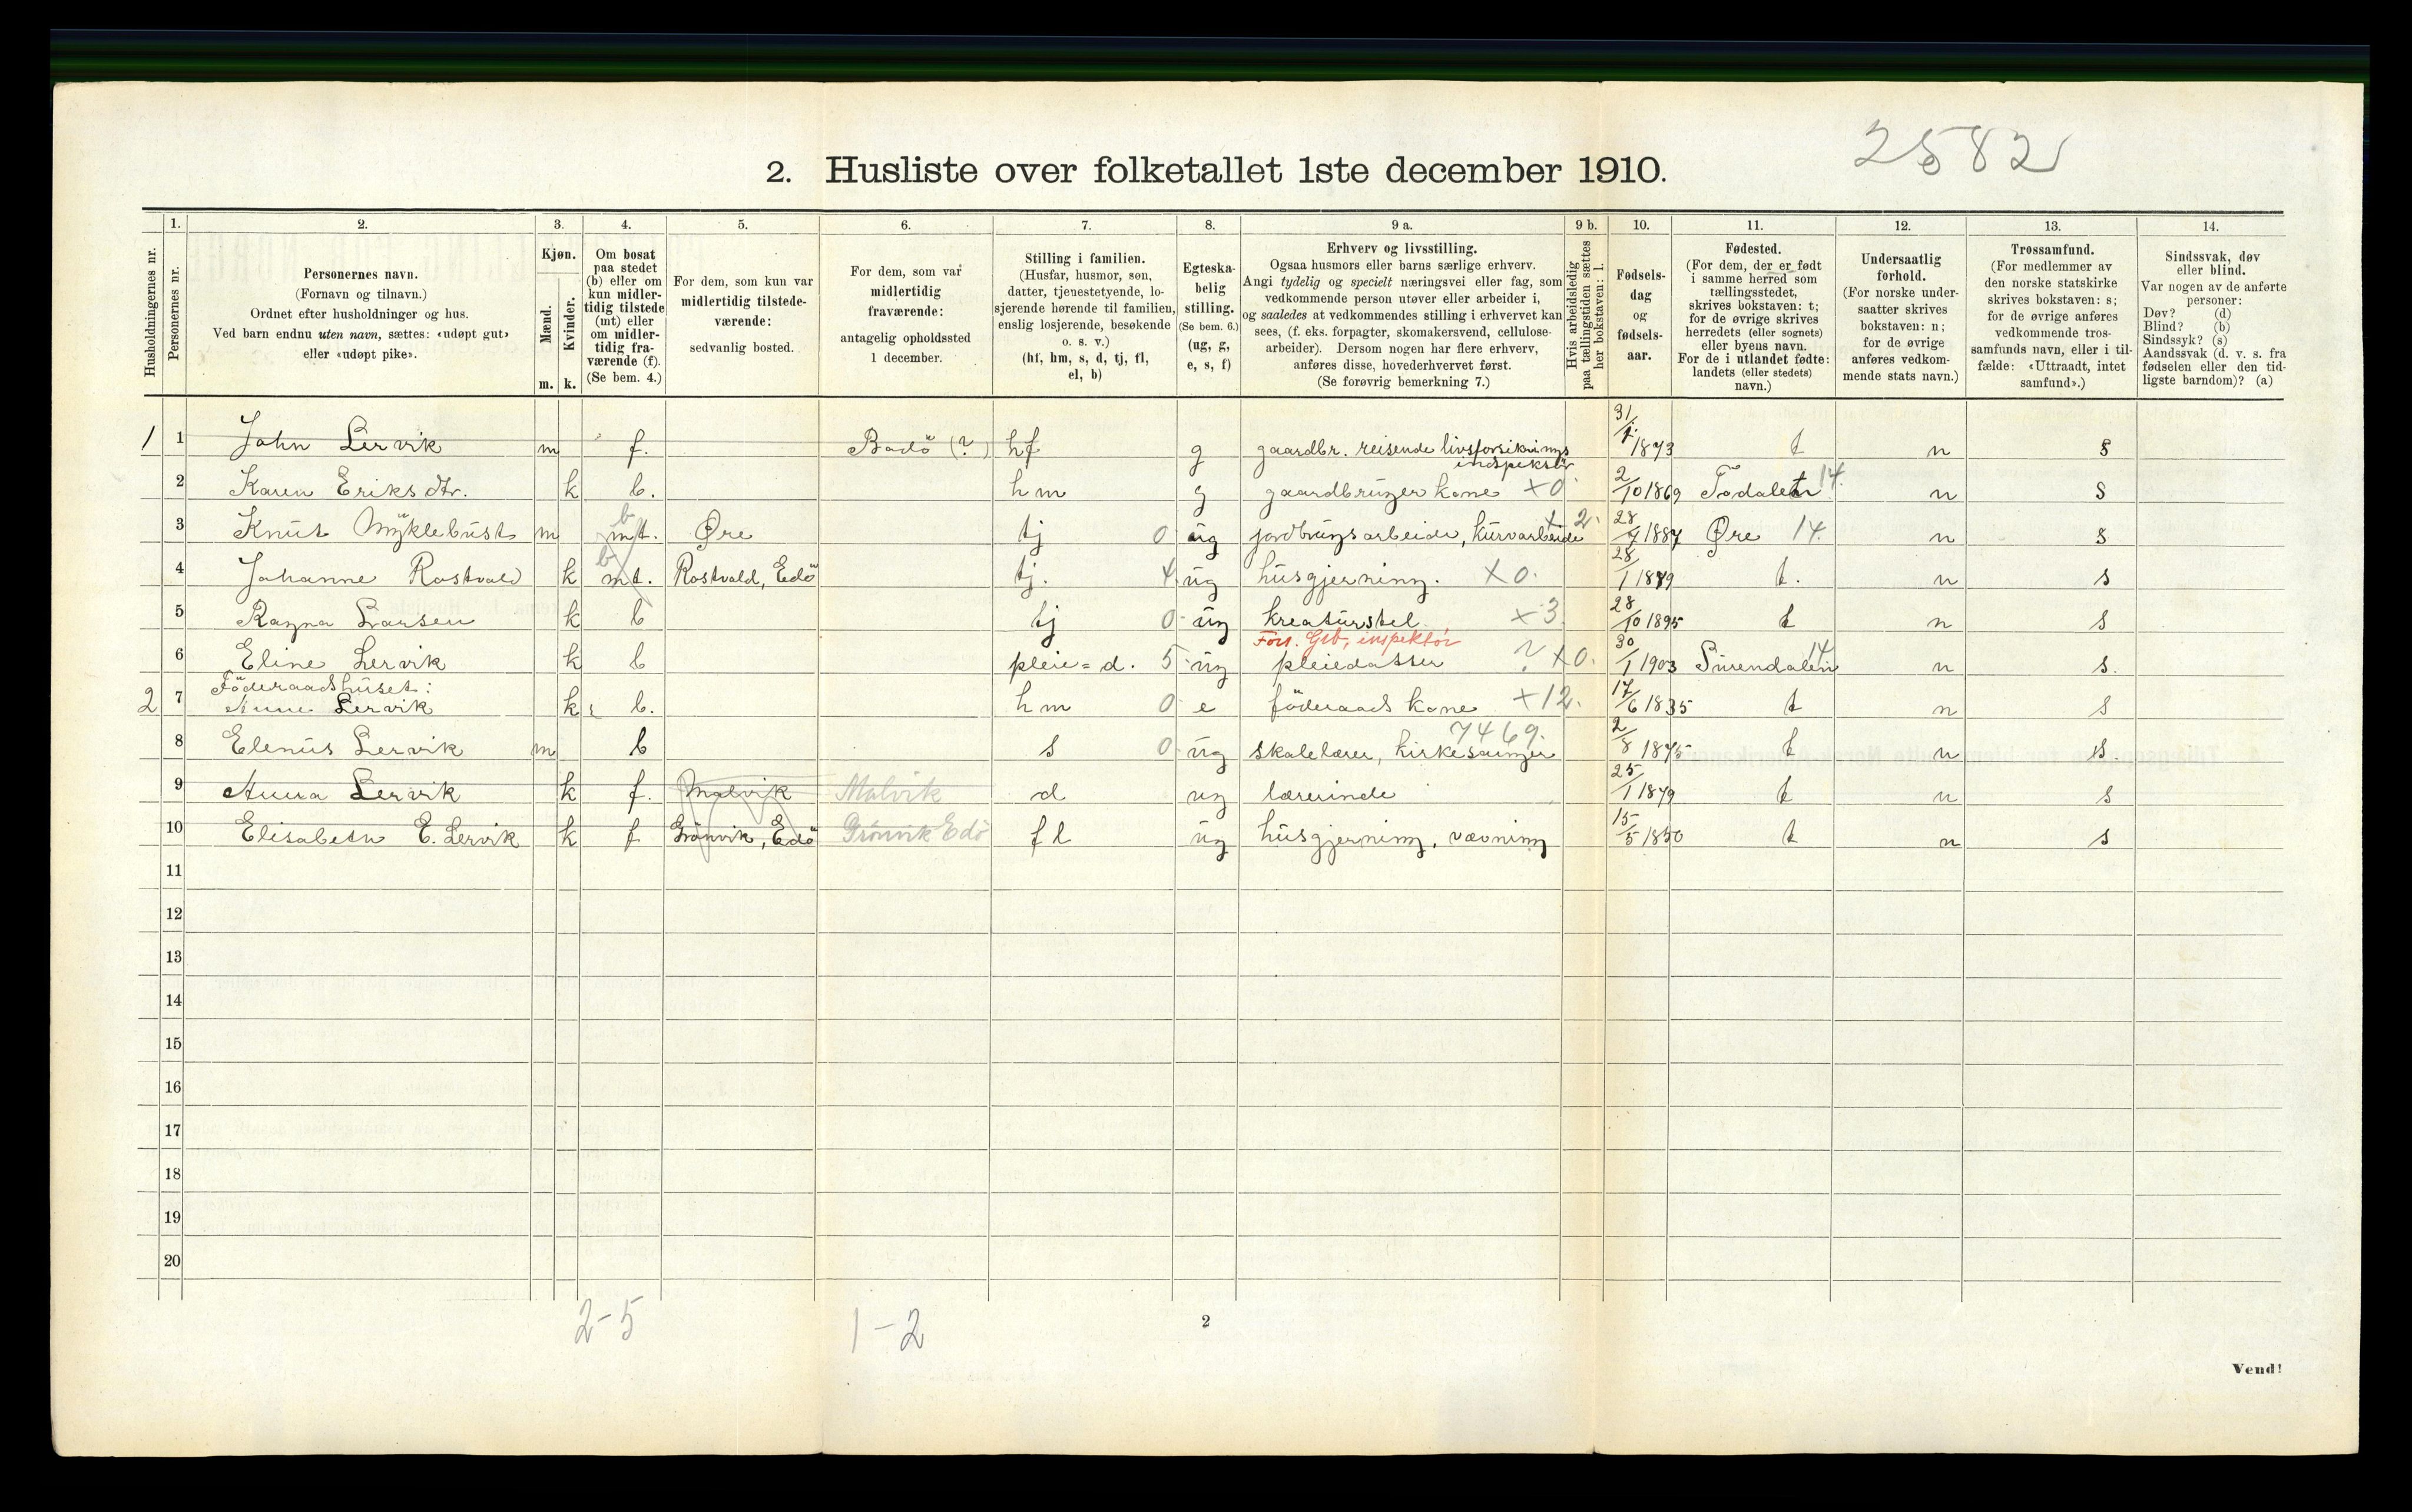 2582
2. Husliste over folketallet 1ste december 1910.
Husholdningernes nr.
1.
Personernes nr.
2.
Personernes navn.
(Fornavn og tilnavn.)
Ordnet efter husholdninger og hus.
Ved barn endnu uten navn, sættes: «udøpt gut»
eller «udøpt pike».
3.
Kjøn.
Mænd.
Kvinder.
m. k.
4.
Om bosat
paa stedet
(b) eller om
kun midler-
tidig tilstede
(mt) eller
om midler-
tidig fra-
værende (f).
(Se bem. 4.)
5.
For dem, som kun var
midlertidig tilstede-
værende:
sedvanlig bosted.
6.
For dem, som var
midlertidig
fraværende:
antagelig opholdssted
1 december.
7.
Stilling i familien.
(Husfar, husmor, søn,
datter, tjenestetyende, lo-
sjerende hørende til familien,
enslig losjerende, besøkende
o. s. v.)
(hf, hm, s, d, tj, fl,
el, b)
8.
Egteska-
belig
stilling.
(Se bem. 6.)
(ug, g,
e, s, f)
9 a.
Erhverv og livsstilling.
Ogsaa husmors eller barns særlige erhverv.
Angi tydelig og specielt næringsvei eller fag, som
vedkommende person utøver eller arbeider i,
og saaledes at vedkommendes stilling i erhvervet kan
sees, (f. eks. forpagter, skomakersvend, cellulose-
arbeider). Dersom nogen har flere erhverv,
anføres disse, hovederhvervet først.
(Se forøvrig bemerkning 7.)
9 b.
Hvis arbeidsledig
paa tællingstiden sættes
her bokstaven: l.
10.
Fødsels-
dag
og
fødsels-
aar.
11.
Fødested.
(For dem, der er født
i samme herred som
tællingsstedet,
skrives bokstaven: t;
for de øvrige skrives
herredets (eller sognets)
eller byens navn.
For de i utlandet fødte:
landets (eller stedets)
navn.)
12.
Undersaatlig
forhold.
(For norske under-
saatter skrives
bokstaven: n;
for de øvrige
anføres vedkom-
mende stats navn.)
13.
Trossamfund.
(For medlemmer av
den norske statskirke
skrives bokstaven: s;
for de øvrige anføres
vedkommende tros-
samfunds navn, eller i til-
fælde: «Uttraadt, intet
samfund».)
14.
Sindssvak, døv
eller blind.
Var nogen av de anførte
personer:
Døv? (d)
Blind? (b)
Sindssyk? (s)
Aandssvak (d. v. s. fra
fødselen eller den tid-
ligste barndom)? (a)
1 1 John Lervik m f. Bodö (?) hf g gaardbr. reisende livsforsiknings
indspektör 31/1 1873 t n s
2 Karen Eriksdtr. k b. hm g gaardbruger kone X0 2/10 1869 Todalen 14. n s
3 Knut Myklebust m mt. b Øre tj 0 ug jordbrugsarbeide, kurvarbeide X 2. 28/7 1887 Øre 14. n s
4 Johanne Rostvold k mt. b Rostvold, Edö tj. 4 ug husgjerning. X0. 28/1 1889 t. n s
5 Ragna Larsen k b tj 0 ug kreaturstel X3 28/10 1895 t n s
Fors. Grb, inspektör
6 Eline Lervik k b pleie=d. 5 ug pleiedatter ? X0. 30/1 1903 Surendalen 14 n s.
Föderaadshuset:
2 7 Anne Lervik k b. hm 0 e föderaads kone X12. 17/6 1835 t n s
7469.
8 Elenus Lervik m b s 0 ug skolelærer, kirkesanger 2/8 1875 t n s.
9 Anna Lervik k f. Malvik Malvik d ug lærerinde 25/1 1879 t n s
10 Elisabeth E. Lervik k f Grönvik, Edö Grönvik Edö fl ug husgjerning, vævning 15/5 1850 t n s
11
12
13
14
15
16
17
18
19
20
2-5
1-2
2
Vend!